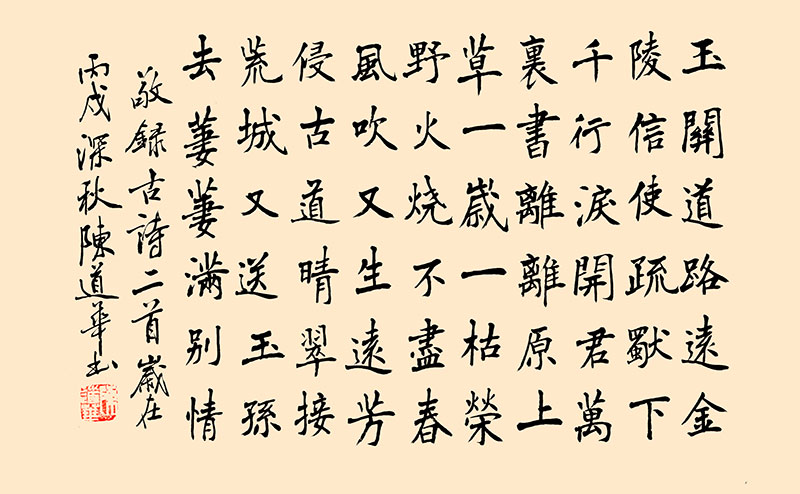 玉關道路遠金
陵信使疏獸下
千行淚開君萬
裏書離離原上
草一歲一枯榮
野火烧不盡春
風吹又生遠芳
侵古道晴翠接
荒城又送玉孫
去萋萋滿別情
敬錄古詩二首歲在
丙戌深秋陳道華书